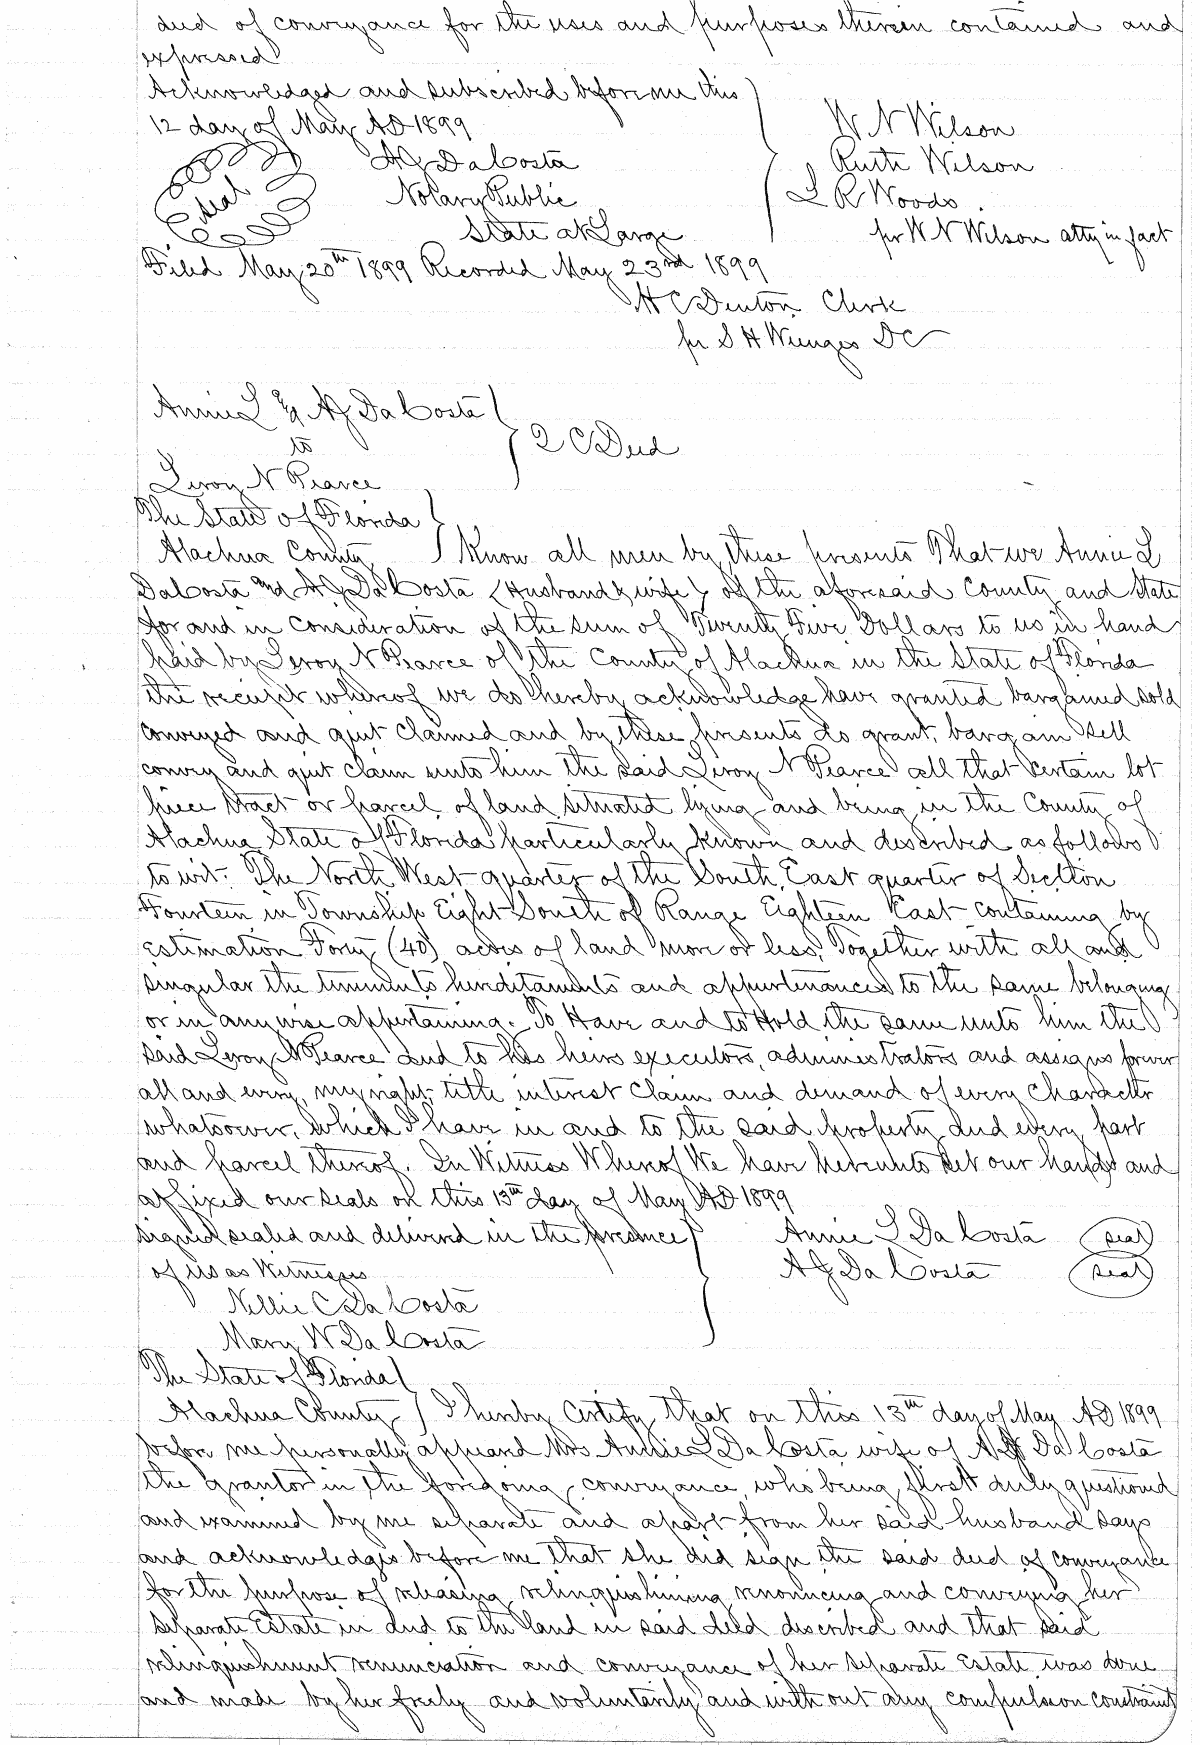 deed of conveyance for the uses and purposes therein contained and
expressed
Acknowledged and subscribed before me this
12 day of May AD 1899
W N Wilson
A J DaCosta
Ruth Wilson
seal
Notary Public
L R Woods
State at Large
per W N Wilson atty in fact
Filed May 20th 1899 Recorded May 23rd 1899
H C Denton Clerk
per S H Wienges DC
Annie L & A J DaCosta
to
Q C Deed
Leroy N Pearce
The State of Florida
Alachua County Know all men by these presents That we Annie L
DaCosta and A J DaCosta (Husband & wife) of the aforesaid County and State
for and in consideration of the sum of Twenty Five Dollars to us in hand
paid by Leroy N Pearce of the County of Alachua in the State of Florida
the receipt whereof we do hereby acknowledge have granted bargained sold
conveyed and quit claimed and by these presents do grant, bargain sell
convey and quit claim unto him the said Leroy N Pearce all that certain lot
piece tract or parcel of land situated lying and being in the County of
Alachua State of Florida particularly known and described as follows
to wit: The North West quarter of the South East quarter of Section
Fourteen in Township Eight South of Range Eighteen East containing by
estimation Forty (40) acres of land more or less, Together with all and
singular the tenements hereditaments and appurtenances to the same belonging
or in any wise appertaining. To Have and to Hold the same unto him the
said Leroy N Pearce and to his heirs executors, administrators and assigns forever
all and every, my right, title interest claim and demand of every character
whatsoever, which I have in and to the said property and every part
and parcel thereof. In Witness Whereof We have hereunto set our hands and
affixed our seals on this 13th day of May AD 1899
signed sealed and delivered in the presence Annie L DaCosta seal
of us as Witnesses A J DaCosta seal
Nellie C DaCosta
Mary W DaCosta
The State of Florida
Alachua County I hereby Certify that on this 13th day of May AD 1899
before me personally appeard Mrs Annie L DaCosta wife of A J DaCosta
the grantor in the foregoing conveyance, who being first duly questioned
and examined by me separate and apart from her said husband says
and acknowledges before me that she did sign the said deed of conveyance
for the purpose of releasing relinquishining renouncing and conveying her
separate Estate in and to the land in said deed described and that said
relinquishment renunciation and conveyance of her separate Estate was done
and made by her freely and voluntarily and with out any compulsion constraint